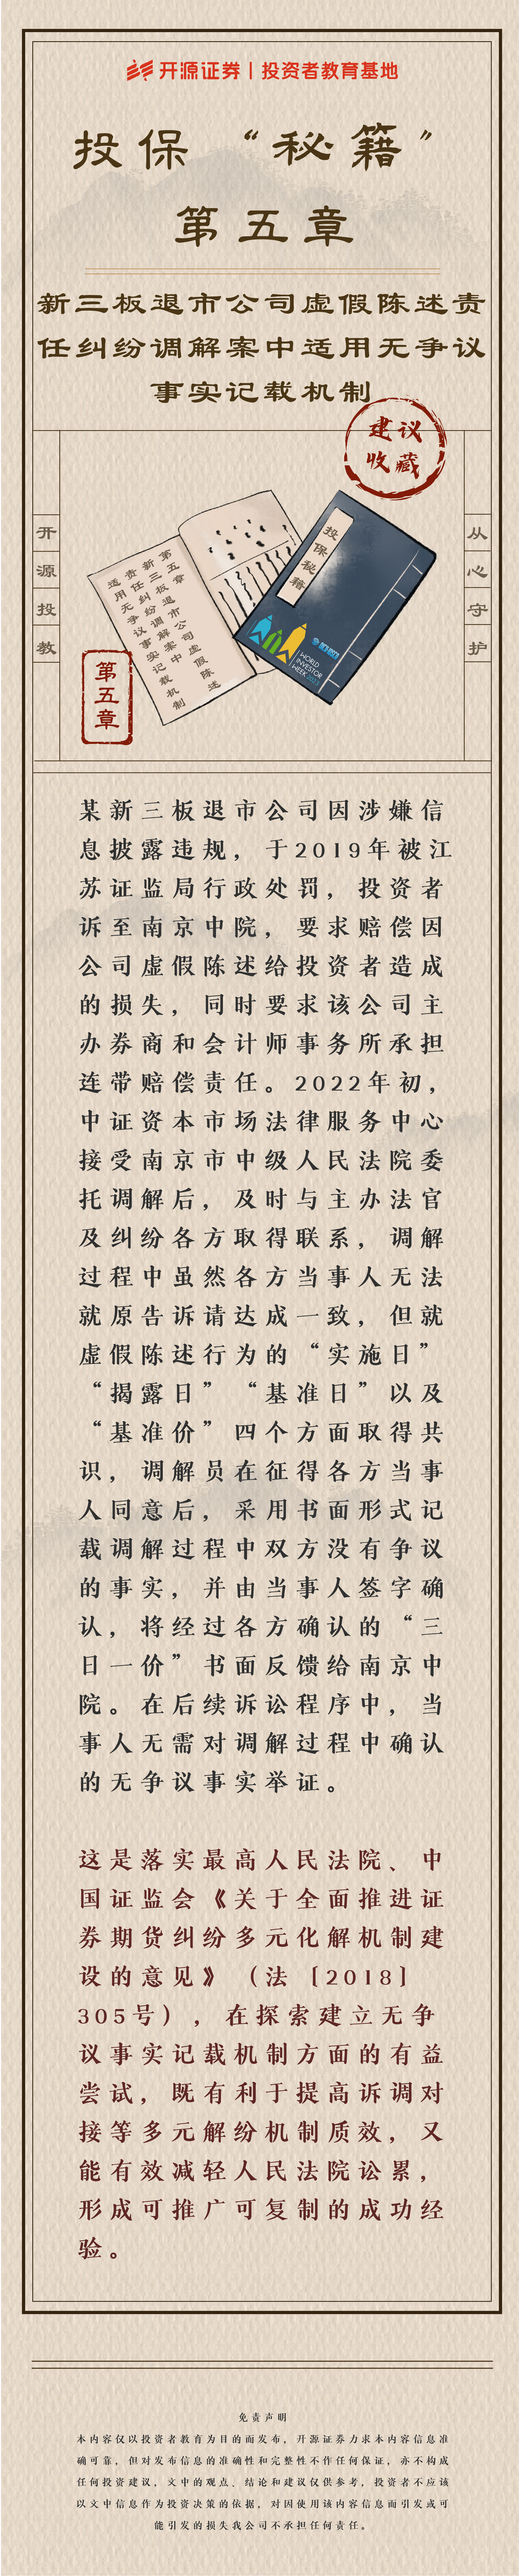 开源证券｜投资者教育基地
投保“秘籍”
第五章
新三板退市公司虚假陈述责
任纠纷调解案中适用无争议
事实记载机制
建议
收藏
开源投教
从心守护
第五章
新三板退市公司虚假陈述
责任纠纷调解案中
适用无争议事实记载机制
投保秘籍
WORLD
INVESTOR
WEEK 2023
第五章
某新三板退市公司因涉嫌信
息披露违规，于2019年被江
苏证监局行政处罚，投资者
诉至南京中院，要求赔偿因
公司虚假陈述给投资者造成
的损失，同时要求该公司主
办券商和会计师事务所承担
连带赔偿责任。2022年初，
中证资本市场法律服务中心
接受南京市中级人民法院委
托调解后，及时与主办法官
及纠纷各方取得联系，调解
过程中虽然各方当事人无法
就原告诉请达成一致，但就
虚假陈述行为的“实施日”
“揭露日”“基准日”以及
“基准价”四个方面取得共
识，调解员在征得各方当事
人同意后，采用书面形式记
载调解过程中双方没有争议
的事实，并由当事人签字确
认，将经过各方确认的“三
日一价”书面反馈给南京中
院。在后续诉讼程序中，当
事人无需对调解过程中确认
的无争议事实举证。
这是落实最高人民法院、中
国证监会《关于全面推进证
券期货纠纷多元化解机制建
设的意见》（法〔2018〕
305号），在探索建立无争
议事实记载机制方面的有益
尝试，既有利于提高诉调对
接等多元解纷机制质效，又
能有效减轻人民法院讼累，
形成可推广可复制的成功经
验。
免责声明
本内容仅以投资者教育为目的而发布，开源证券力求本内容信息准
确可靠，但对发布信息的准确性和完整性不作任何保证，亦不构成
任何投资建议，文中的观点、结论和建议仅供参考，投资者不应该
以文中信息作为投资决策的依据，对因使用该内容信息而引发或可
能引发的损失我公司不承担任何责任。